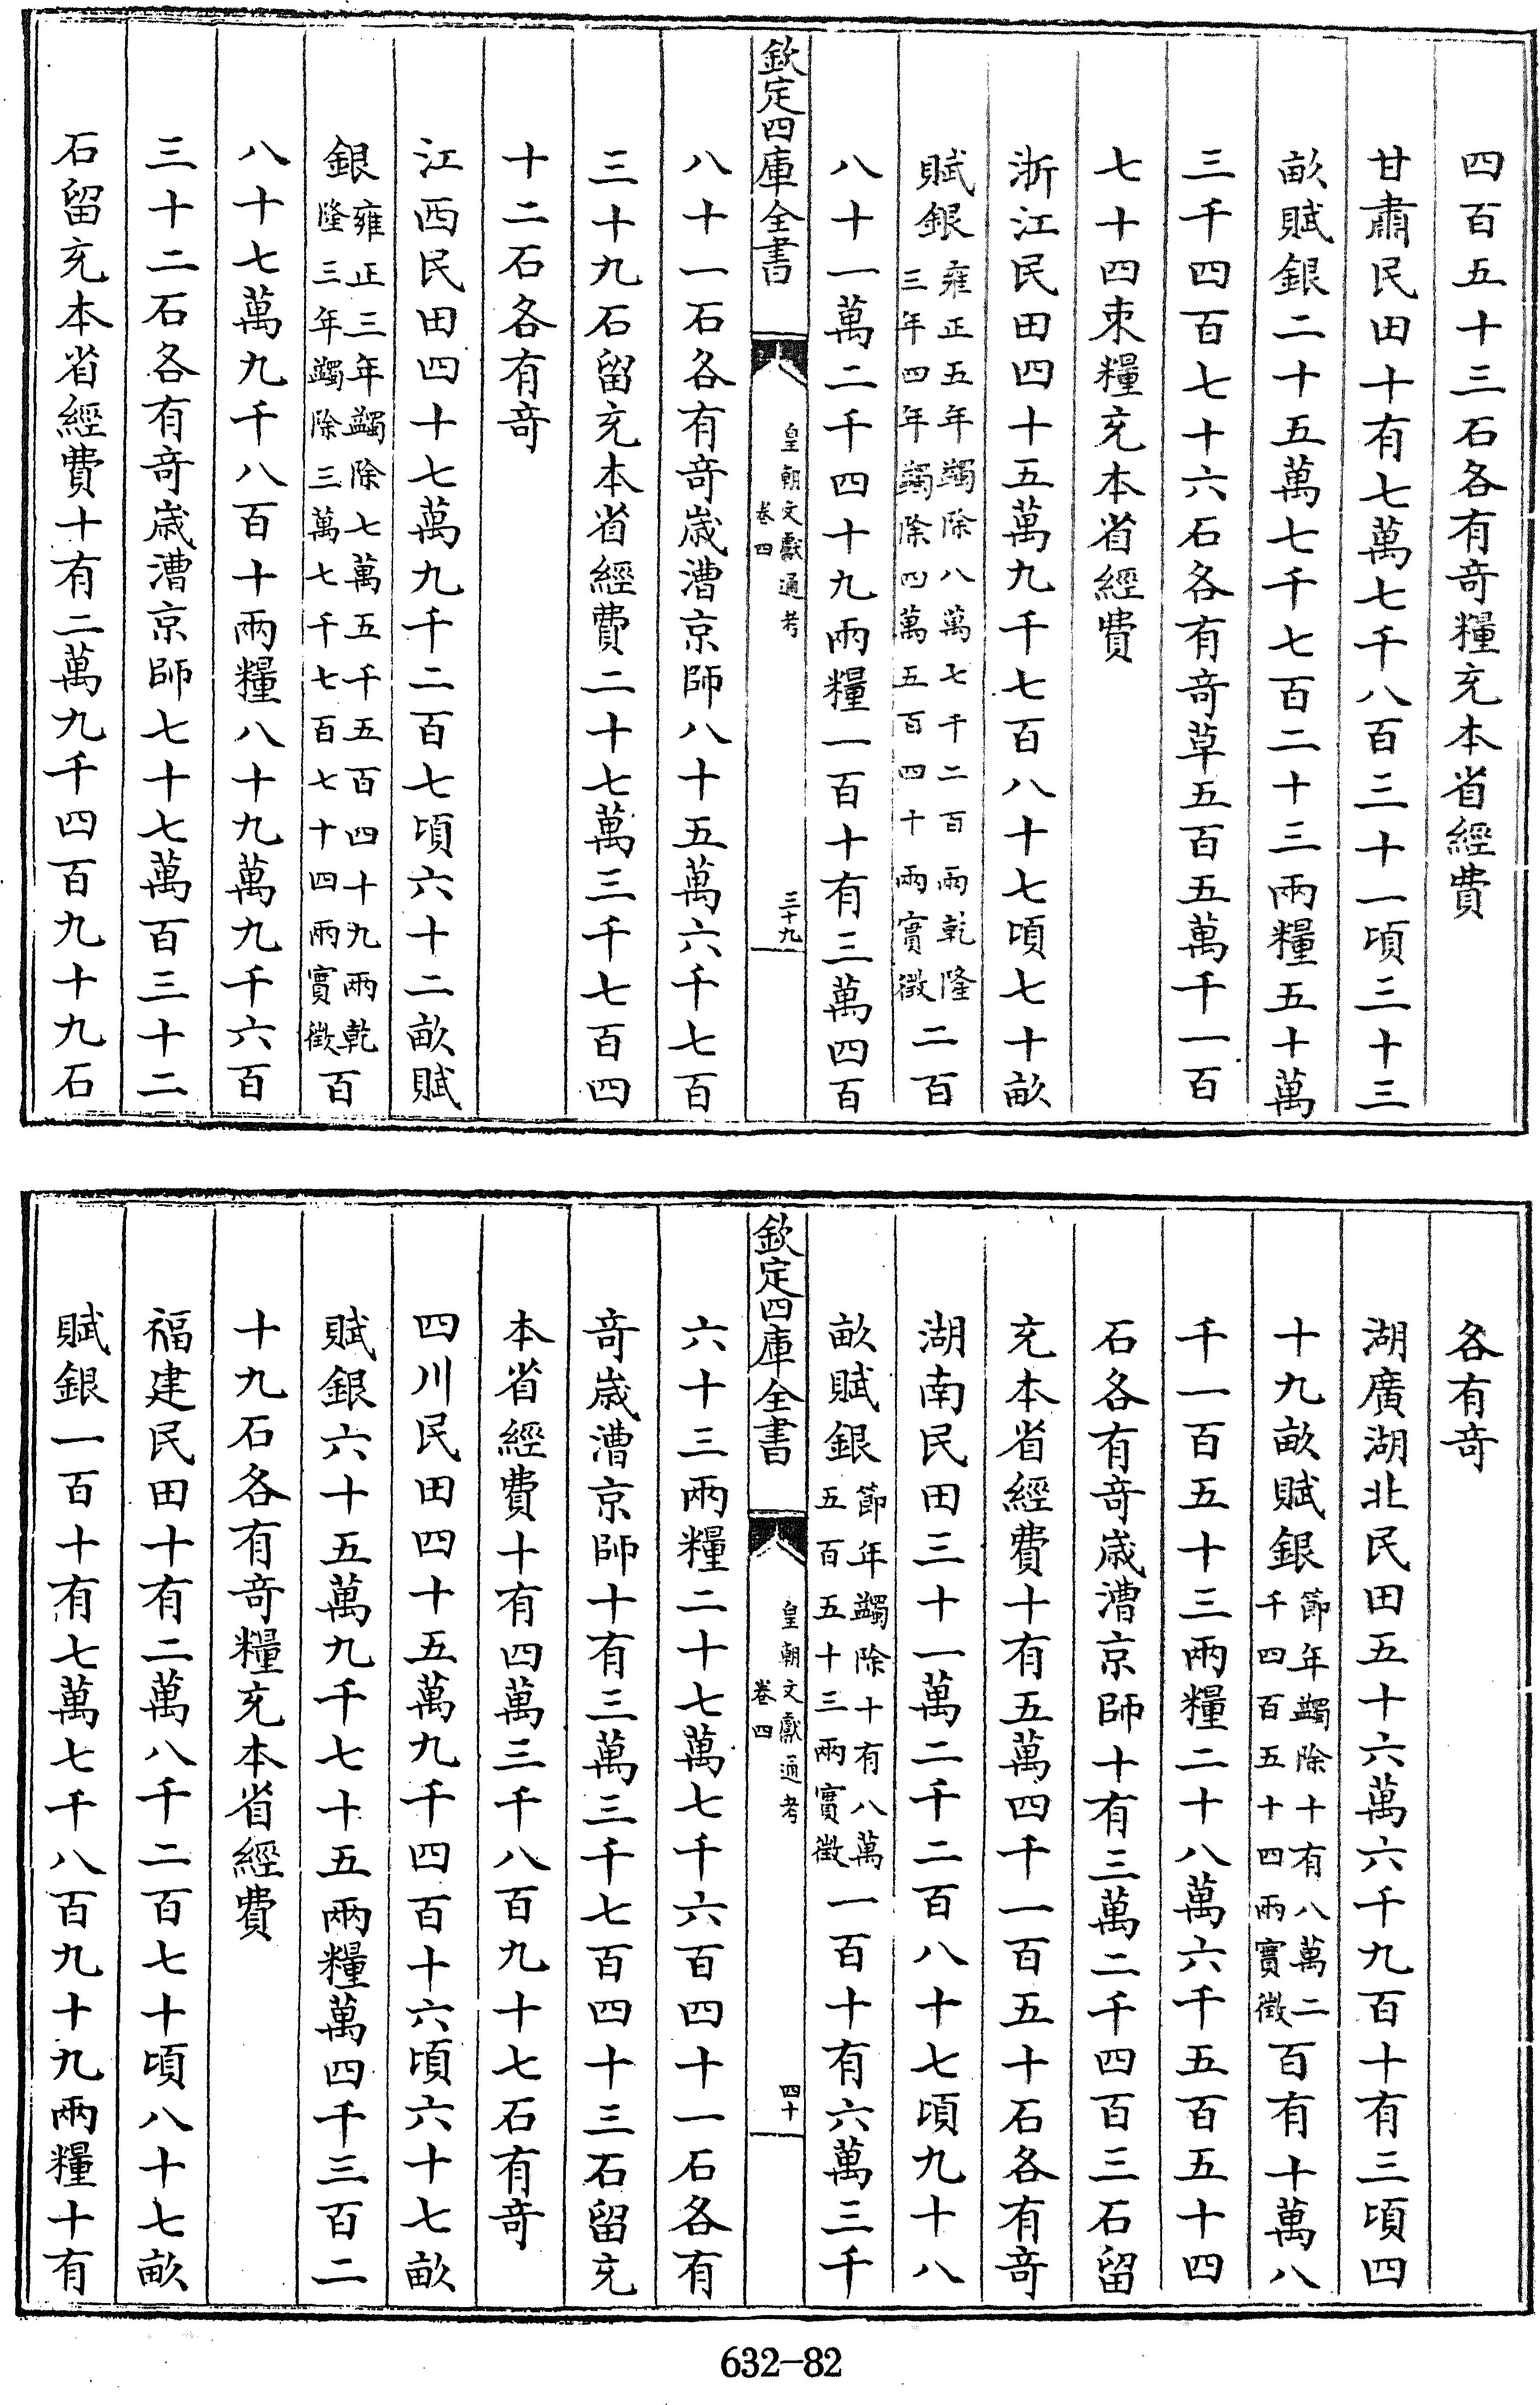 四百五十三石各有奇糧充本省經費
甘肅民田十有七萬七千八百三十一頃三十三
畝賦銀二十五萬七千七百二十三兩糧五十萬
三千四百七十六石各有奇草五百五萬千一百
七十四束糧充本省經費
浙江民田四十五萬九千七百八十七頃七十畝
賦銀雍正五年蠲除八萬七千二百兩乾隆三年四年蠲除四萬五百四十兩實徵二百
八十一萬二千四十九兩糧一百十有三萬四百
欽定四庫全書
皇朝文獻通考
卷四
三十九
八十一石各有奇歲漕京師八十五萬六千七百
三十九石留充本省經費二十七萬三千七百四
十二石各有奇
江西民田四十七萬九千二百七頃六十二畝賦
銀雍正三年蠲除七萬五千五百四十九兩乾隆三年蠲除三萬七千七百七十四兩實徵百
八十七萬九千八百十兩糧八十九萬九千六百
三十二石各有奇歲漕京師七十七萬百三十二
石留充本省經費十有二萬九千四百九十九石
各有奇
湖廣湖北民田五十六萬六千九百十有三頃四
十九畝賦銀節年蠲除十有八萬二千四百五十四兩實徵百有十萬八
千一百五十三兩糧二十八萬六千五百五十四
石各有奇歲漕京師十有三萬二千四百三石留
充本省經費十有五萬四千一百五十石各有奇
湖南民田三十一萬二千二百八十七頃九十八
畝賦銀節年蠲除十有八萬五百五十三兩實徵一百十有六萬三千
欽定四庫全書
皇朝文獻通考
卷四
四十
六十三兩糧二十七萬七千六百四十一石各有
奇歲漕京師十有三萬三千七百四十三石留充
本省經費十有四萬三千八百九十七石有奇
四川民田四十五萬九千四百十六頃六十七畝
賦銀六十五萬九千七十五兩糧萬四千三百二
十九石各有奇糧充本省經費
福建民田十有二萬八千二百七十頃八十七畝
賦銀一百十有七萬七千八百九十九兩糧十有
632-82